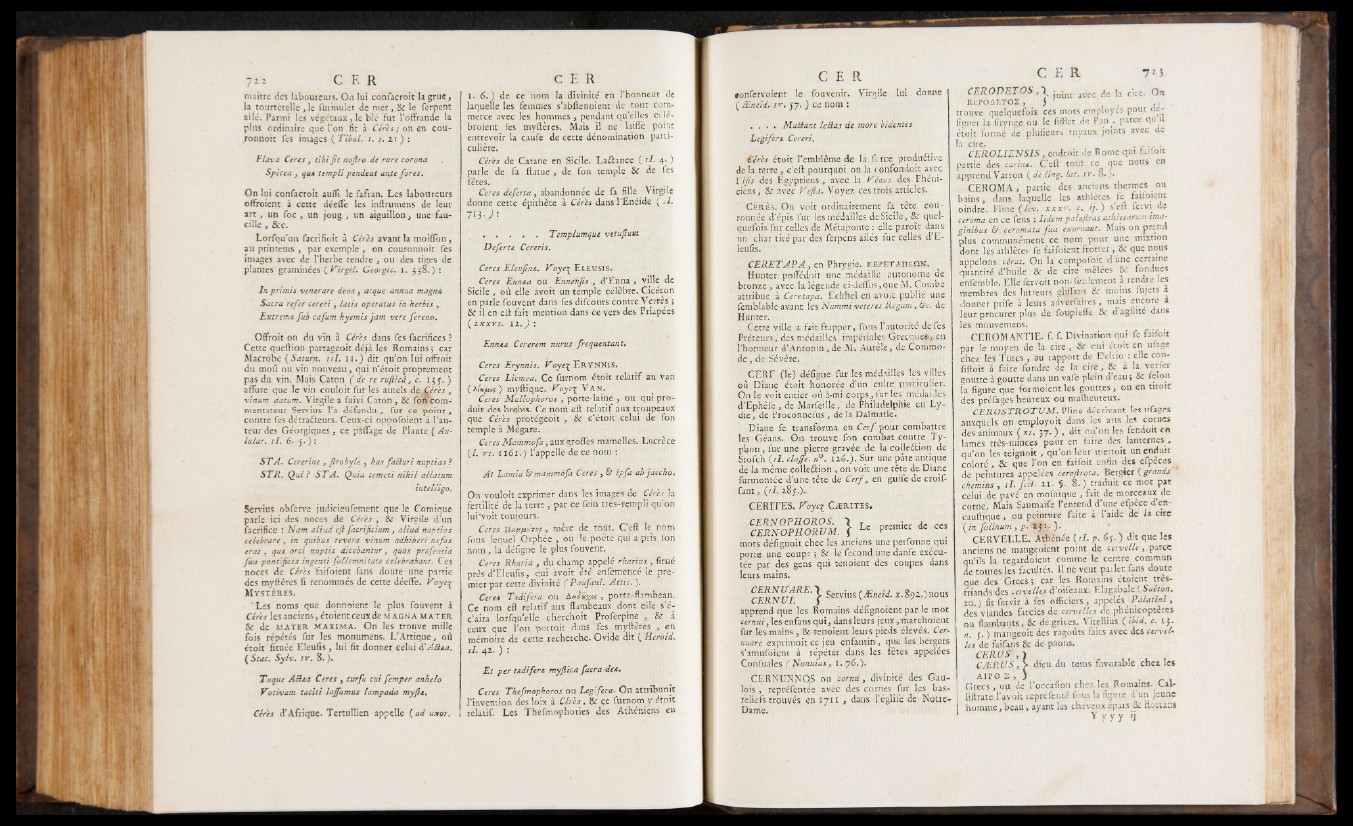 722 C E R
maître des laboureurs. On lui confacroit la grue,
la tourterelle, le furmulet de mer, & le ferpent
ailé. Parmi les végétaux, le blé fut l'offrande la
plus ordinaire que l'on fit à Cérès; on en cou-
ronnoit fes images (Tibul. 1. 1. 21) :
Flava Ceres, tibi fit noftro de rure corona
Spicea, quæ templi pendeat ante fores.
On lui confacroit auffi le faftan. Les laboureurs
offroient à cette déeffe les inftrumens de leur
art, un foc, un joug, un aiguillon, une fau-
cille, &c.
Lorfqu'on facrifioit à Cérès avant la moiffon,
au printems, par exemple, on couronnoit fes
images avec de l'herbe tendre, ou des tiges de
plantes graminées (Virgil. Georgic. 1. 338.) :
In primis venerare deos, atque annua magnæ
Sacra refer cereri, lætis operatus in herbis,
Extremæ fub cafum hyemis jam vere fereno.
Offroit on du vin à Cérès dans fes facrifices ?
Cette queftion partageoit déjà les Romains; car
Macrobe (Saturn. III. 11.) dit qu'on lui offroit
du moft ou vin nouveau, qui n'étoit proprement
pas du vin. Mais Caton (de re rufticâ, c. 135.)
affure que le vin couloit fur les autels de Cérès,
vinum datum. Virgile a fuivi Caton, & fon com-
mentateur Servius l'a défendu, fur ce point,
contre fes détracteurs. Ceux-ci oppofoient à l'au-
teur des Géorgiques, ce paffage de Plaute (Au-
lular. II. 6. 5.) :
STA. Cererine, ftrobyle, has facturi nuptias ?
STR. Qui ? STA. Quia temeti nihil allatum
intelligo.
Servius obferve judicieufement que le Comique
parle ici des noces de Cérès, & Virgile d'un
facrifice : Nam aliud eft facrificium, aliud nuptias
celebrare, in quibus revera vinum adhiberi nefas
erat, quæ orci nuptiæ dicebantur, quas præfentia
fua pontifices ingenti follemnitate celebrabant. Ces
noces de Cérès faifoient fans doute une partie
des myftères fi renommés de cette déeffe. Voyez
MYSTÈRES.
Les noms que donnoient le plus fouvent à
Cérès les anciens, étoient ceux de MAGNA MATER
& de MATER MAXIMA. On les trouve mille
fois répétés fur les monumens. L'Attique, où
étoit fituée Eleufis, lui fit donner celui d'Actæa.
(Stac. Sylv. IV. 8.).
Tuque Actæa Ceres, curfu cui femper anhelo
Votivam taciti laffamus lampada myftæ.
Cérès d'Afrique. Tertullien appelle (ad uxor.
C E R
1. 6.) de ce nom la divinité en l'honneur de
laquelle les femmes s'abftenoient de tout com-
merce avec les hommes, pendant qu'elles célé-
broient fes myftères. Mais il ne laiffe point
entrevoir la caufe de cette dénomination parti-
culière.
Cérès de Catane en Sicile. Lactance (II. 4.)
parle de fa ftatue, de fon temple & de fes
fêtes.
Ceres deferta, abandonnée de fa fille. Virgile
donne cette épithète à Cérès dans l'Enéide (II.
713.) :
. . . . . . Templumque vetuftum
Defertæ Cereris.
Ceres Eleufine. Voyez ELEUSIS.
Ceres Ennæa ou Ennenfis, d'Enna, ville de
Sicile, où elle avoit un temple célèbre. Cicéron
en parle fouvent dans fes difcones contre Verrès;
& il en eft fait mention dans ce vers des Priapées
(LXXVI. 12.) :
Ennææ Cererem nurus frequentant.
Ceres Erynnis. Voyez ERYNNIS.
Ceres Licmea. Ce furnom étoit relatif au van
myftique. Voyez VAN.
Ceres Mallophoros, porte-laine, ou qui pro-
duit des brebis. Ce nom eft relatif aux troupeaux
que Cérès protégeoit, & c'étoit celui de fon
temple à Mégare.
Ceres Mammofa, aux groffes mamelles. Lucrèce
(l. VI. 1161.) l'appelle de ce nom :
At Lamia & mammofa Ceres, & ipfa ab jaccho.
On vouloit exprimer dans les images de Cérès la
fertilité de la terre, par ce fein très-rempli qu'on
lui voit toujours.
Ceres Παμμητωρ, mère de tout. C'eft le nom
fous lequel Orphée, ou le poëte qui a pris fon
nom, la défigne le plus fouvent.
Ceres Rharia, du champ appelé rharius, fitué
près d'Eleufis, qui avoit été enfemencé le pre-
mier par cette divinité (Paufani. Attic.).
Ceres Tadifera ou, porte-flambeau.
Ce nom eft relatif aux flambeaux dont elle s'é-
claira lorfqu'elle cherchoit Proferpine, & à
ceux que l'on portoit dans fes myftères, en
mémoire de cette recherche. Ovide dit (Heroid.
II. 42.) :
Et per tædiferæ myftica facra deæ.
Ceres Thefmophoros ou Legifera. On attribuoit
l'invention des loix à Cérès, & ce furnom y étoit
relatif. Les Thefmophories des Athéniens en
C E R
confervoient le fouvenir. Virgile lui donne
(Æneid. IV. 57.) ce nom :
. . . . Mactant lectas de more bidentes
Legiferæ Cereri.
Cérès étoit l'emblême de la force productive
de la terre, c'eft pourquoi on la confondoit avec
l'Ifis des Egyptiens, avec la Vénus des Phéni-
ciens, & avec Vefta. Voyez ces trois articles.
CÉRÈS. On voit ordinairement fa tête cou-
ronnée d'épis fur les médailles de Sicile, & quel-
quefois fur celles de Métaponte : elle paroît dans
un char tiré par des ferpens ailés fur celles d'E-
leufis.
CERETAPA, en Phrygie. ΚΕΡΕΤΑΠΕΩΝ.
Hunter poffédoit une médaille autonome de
bronze, avec la légende ci-deffus, que M. Combe
attribue à Ceretapa. Eckhel en avoit publié une
femblable avant les Nummi veteres Regum, &c. de
Hunter.
Cette ville a fait frapper, fous l'autorité de fes
Préteurs, des médailles impériales Grecques, en
l'honneur d'Antonin, de M. Aurèle, de Commo-
de, de Sévère.
CERF (le) défigne fur les médailles les villes
où Diane étoit honorée d'un culte particulier.
On le voit entier ou à-mi corps, fur les médailles
d'Ephèfe, de Marfeille, de Philadelphie en Ly-
die, de Proconnefus, de la Dalmatie.
Diane fe transforma en Cerf pour combattre
les Géans. On trouve fon combat contre Ty-
phon, fur une pierre gravée de la collection de
Stofch (II. claffe. n°. 126.). Sur une pâte antique
de la même collection, on voit une tête de Diane
furmontée d'une tête de Cerf, en guife de croif-
fant, (II. 285.).
CERITES. Voyez CÆRITES.
CERNOPHOROS. } Le premier de ces
CERNOPHORUM. }
mots défignoit chez les anciens une perfonne qui
porte une coupe; & le fecond une danfe exécu-
tée par des gens qui tenoient des coupes dans
leurs mains.
CERNUARE. } Servius (Æneid. X. 892.) nous
CERNUI. }
apprend que les Romains défignoient par le mot
cernui, les enfans qui, dans leurs jeux, marchoient
fur les mains, & tenoient leurs pieds élevés. Cer-
nuare exprimoit ce jeu enfantin, que les bergers
s'amufoient à répéter dans les fêtes appelées
Confuales (Nonnius, 1. 76.).
CERNUNNOS ou cornu, divinité des Gau-
lois, repréfentée avec des cornes fur les bas-
reliefs trouvés en 1711, dans l'églife de Notre-
Dame.
C E R 723
CERODETOS, } joint avec de la cire. On
ΚΕΡΟΔΕΤΟΣ, }
trouve quelquefois ces mots employés pour dé-
figner la firynge ou le fifflet de Pan, parce qu'il
étoit formé de plufieurs tuyaux joints avec de
la cire.
CEROLIENSIS, endroit de Rome qui faifoit
partie des carinæ. C'eft tout ce que nous en
apprend Varron (de ling. lat. IV. 8.).
CEROMA, partie des anciens thermes ou
bains, dans laquelle les athlètes fe faifoient
oindre. Pline (liv. XXXV. c. ij.) s'eft fervi de
ceroma en ce fens : Iidem palæftras athletarum ima-
ginibus & ceromata fua exornant. Mais on prend
plus communément ce nom pour une mixtion
dont les athlètes fe faifoient frotter, & que nous
appelons cérat. On la compofoit d'une certaine
quantité d'huile & de cire mêlées & fondues
enfemble. Elle fervoit non-feulement à rendre les
membres des lutteurs gliffans & moins fujets à
donner prife à leurs adverfaires, mais encore à
leur procurer plus de foupleffe & d'agilité dans
les mouvemens.
CEROMANTIE. f. f. Divination qui fe faifoit
par le moyen de la cire, & qui étoit en ufage
chez les Turcs, au rapport de Delrio : elle con-
fiftoit à faire fondre de la cire, & à la verfer
goutte à goutte dans un vafe plein d'eau; & felon
la figure que formoient les gouttes, on en tiroit
des préfages heureux ou malheureux.
CEROSTROTUM. Pline décrivant les ufages
auxquels on employoit dans les arts les cornes
des animaux (XI. 37.), dit qu'on les fendoit en
lames très-minces pour en faire des lanternes,
qu'on les teignoit, qu'on leur mettoit un enduit
coloré, & que l'on en faifoit enfin des efpèces
de peintures appelées ceroftrota. Bergier (grands
chemins, II. fect. 21. §. 8.) traduit ce mot par
celui de pavé en mofaïque, fait de morceaux de
corne. Mais Saumaife l'entend d'une efpèce d'en-
cauftique, ou peinture faite à l'aide de la cire
(in folinum, p. 231.).
CERVELLE. Athénée (II. p. 65.) dit que les
anciens ne mangeoient point de cervelle, parce
qu'ils la regardoient comme le centre commun
de toutes les facultés. Il ne veut parler fans doute
que des Grecs; car les Romains étoient très-
friands des cervelles d'oifeaux. Elagabale (Suéton.
20.) fit fervir à fes officiers, appelés Palatini,
des viandes farcies de cervelles de phénicoptères
ou flambants, & de grives. Vitellius (ibid. c. 13.
n. 5.) mangeoit des ragoûts faits avec des cervel-
les de faifans & de paons.
CERUS, }
CÆRUS, } dieu du tems favorable chez les
ΑΙΡΟΣ, }
Grecs, ou de l'occafion chez les Romains. Cal-
liftrate l'avoit repréfenté fous la figure d'un jeune
homme, beau, ayant les cheveux épars & flottans
Y y y y ij